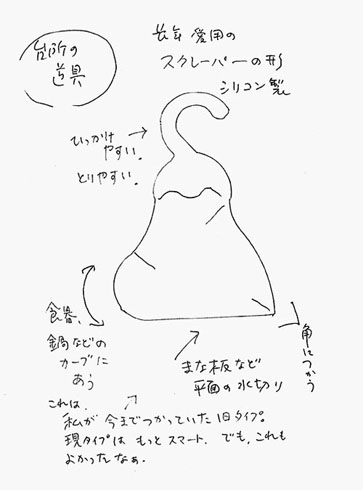 台所の
道具
長年愛用の
スクレーパーの形
シリコン製
ひっかけ
やすい。
とりやすい。
食器、
鍋などの
カーブに
あう
まな板など
平面の水切り
角につかう
これは、
私が今までつかっていた旧タイプ。
現タイプはもっとスマート。でも、これも
よかったなぁ。